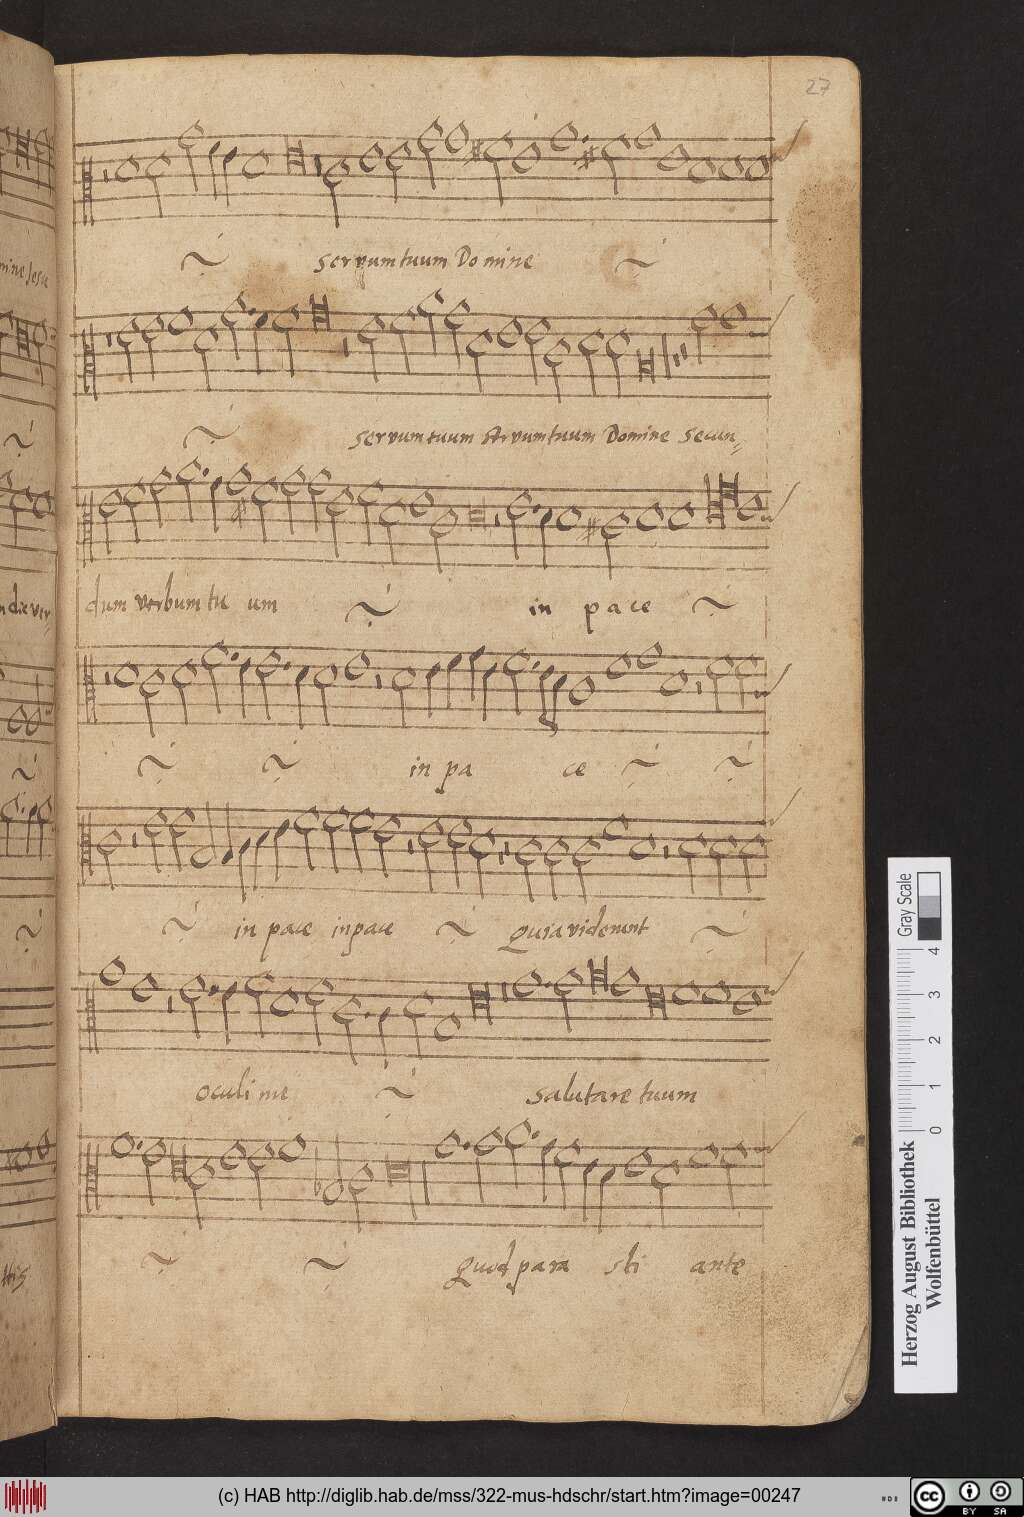 27
servum tuum Domine
servum tuum servum tuum Domine Secun=
dum verbum tu um in pace
in pa ce
in pace in pace Quia viderunt
oculi mei salutare tuum
Quod para sti ante
Gray Scale
0 1 2 3 4
Herzog August Bibliothek
Wolfenbüttel
(c) HAB http://diglib.hab.de/mss/322-mus-hdschr/start.htm?image=00247
cc BY SA